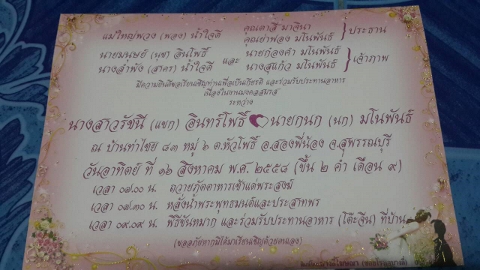 แม่ใหญ่พวง (พลอง) น้ำใจดี
คุณตาสี มาจีนา
คุณยาฟอง มโนพันธ์
ประธาน
นายมนูษย์ (นุช) อินโพธิ์
นางลำพึง (สาคร) น้ำใจดี
และ
นายก้องคำ มโนพันธ์
นางสุแก้ว มโนพันธ์
เจ้าภาพ
มีความยินดีขอเรียนเชิญท่านเพื่อเป็นเกียรติ และร่วมรับประทานอาหาร
เนื่องในงานมงคลสมรส
ระหว่าง
นางสาวรัชนี (แขก) อินทร์โพธิ์ นายกนก (นก) มโนพันธ์
ณ บ้านท่าไชย ๘๓ หมู่ ๖ ต.หัวโพธิ์ อ.สองพี่น้อง จ.สุพรรณบุรี
วันอาทิตย์ ที่ ๑๖ สิงหาคม พ.ศ. ๒๕๕๘ (ขึ้น ๒ ค่ำ เดือน ๙)
เวลา ๐๗.๐๐ น. ถวายภัตตาหารเช้าแด่พระสงฆ์
เวลา ๐๗.๓๐ น. หลั่งน้ำพระพุทธมนต์และประสาทพร
เวลา ๐๙.๐๙ น. พิธีขันหมาก และร่วมรับประทานอาหาร (โต๊ะจีน) ที่บ้าน
(ขออภัยหากมิได้มาเรียนเชิญด้วยตนเอง)